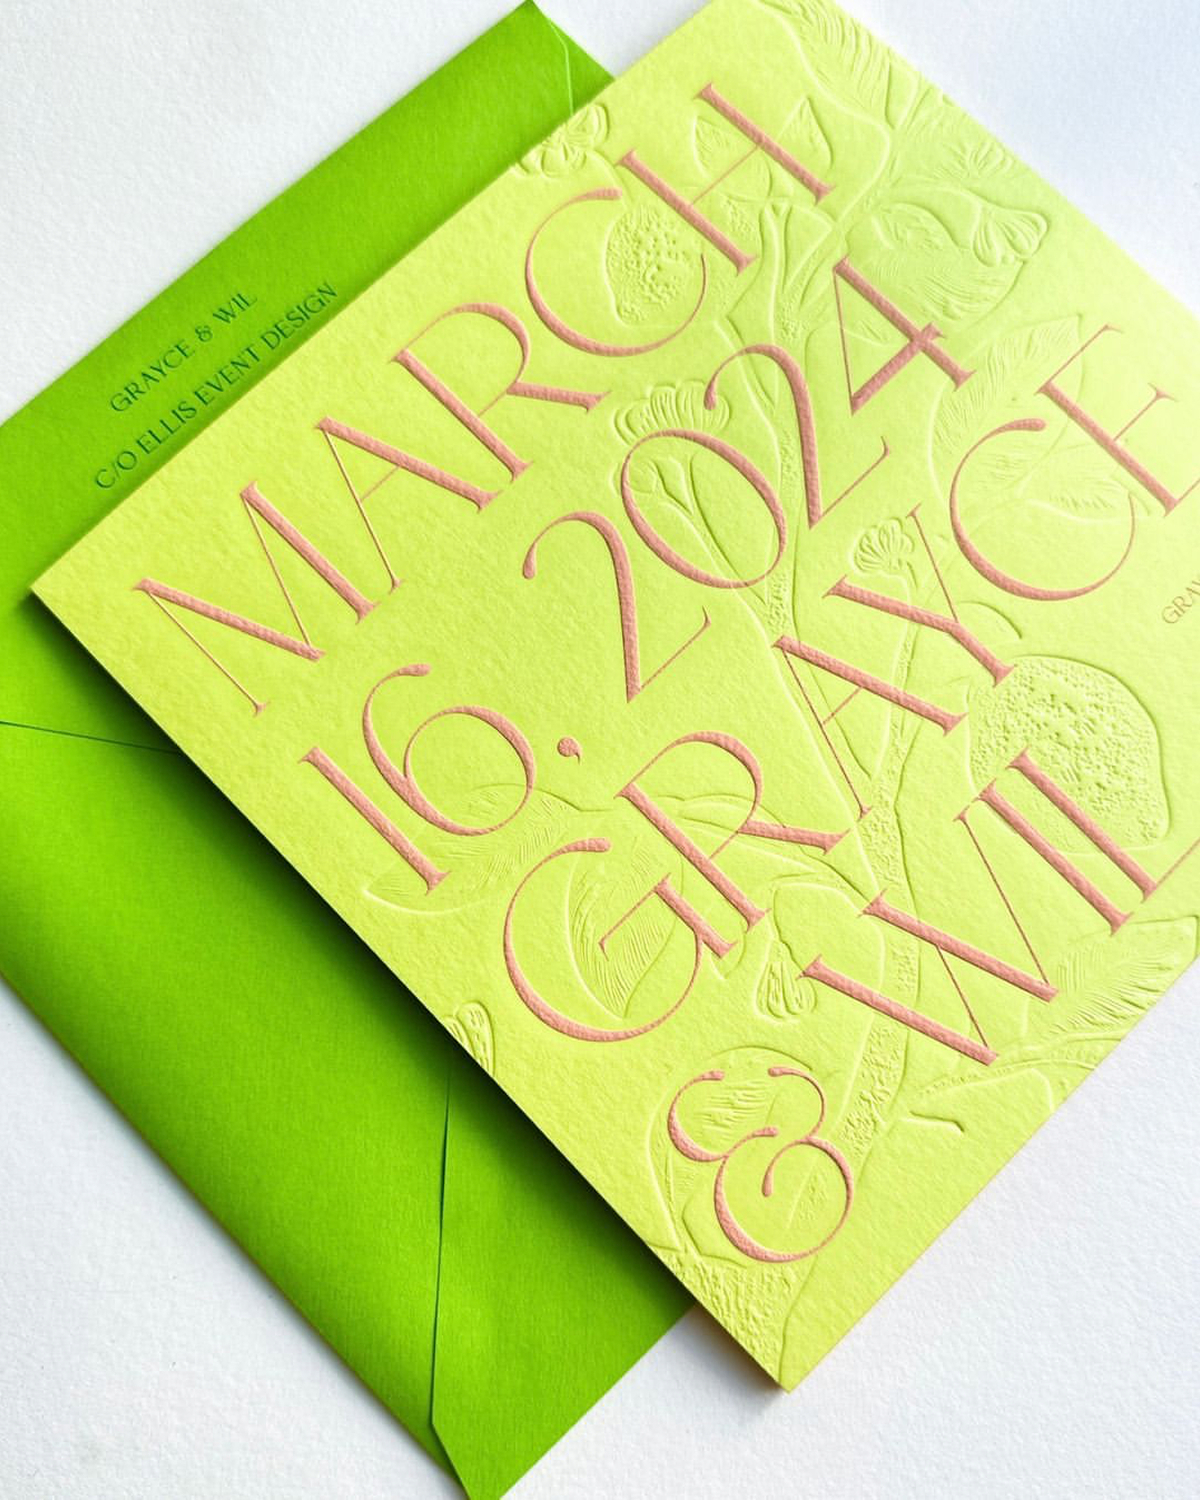 GRAYCE & WIL
C/O ELLIS EVENT DESIGN
MARCH
16, 2024
GRAYCE
& WIL